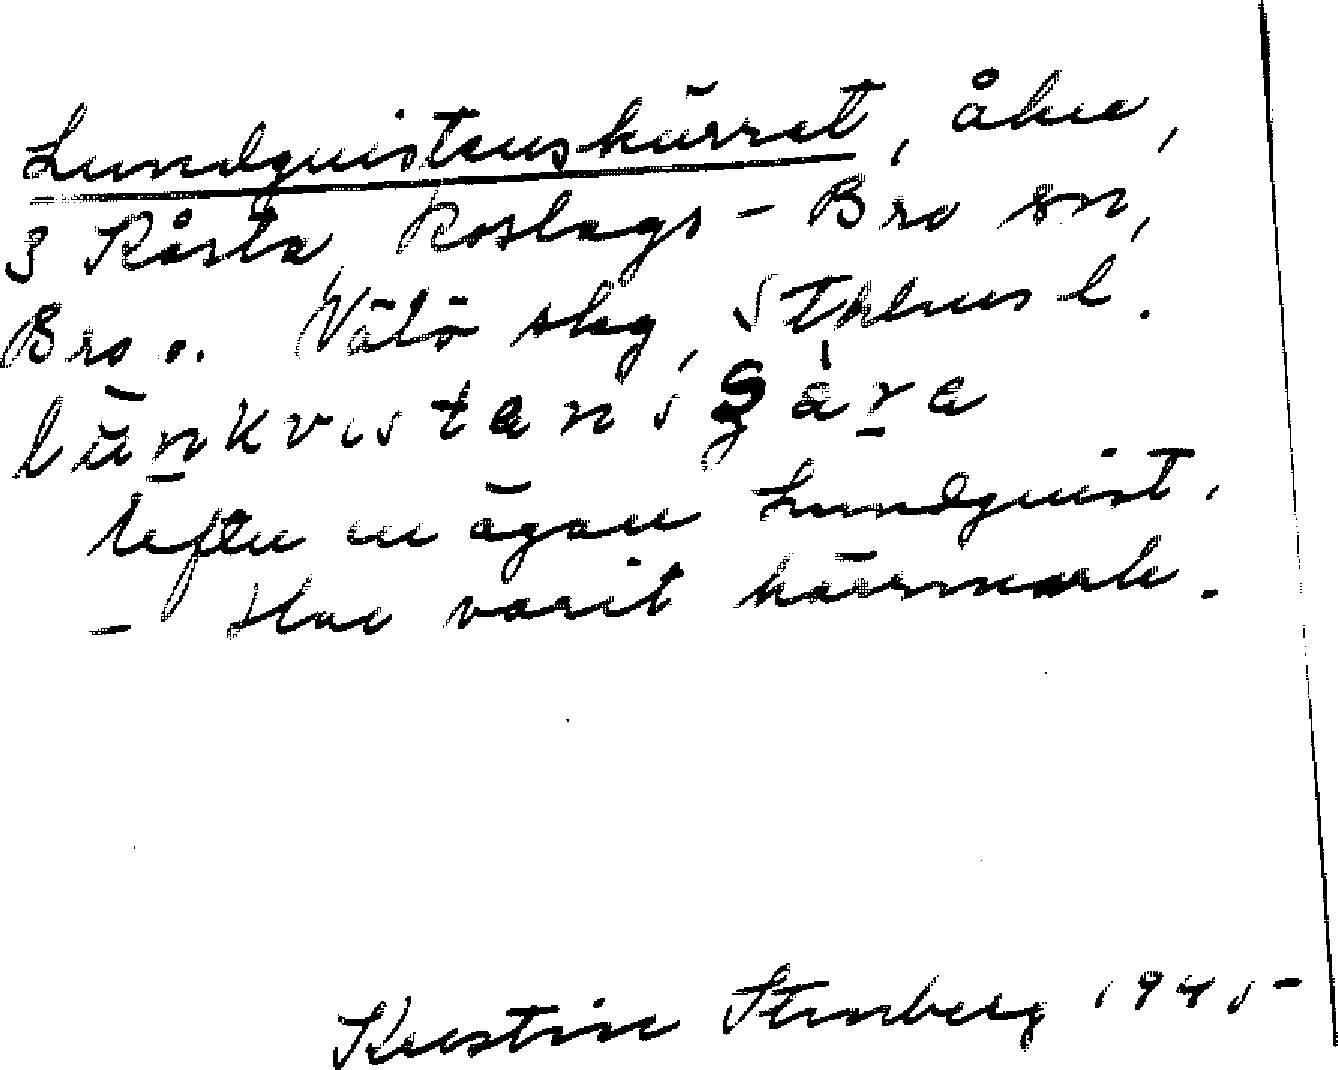 Lundquistenskärret, åker,
3 Kårsta, Roslags-Bro sn,
Bro o. Vätö skg, Sthlms l.
Efter en ägare Lundquist.
- Har varit kärrmark.
Kerstin Stenberg 1945